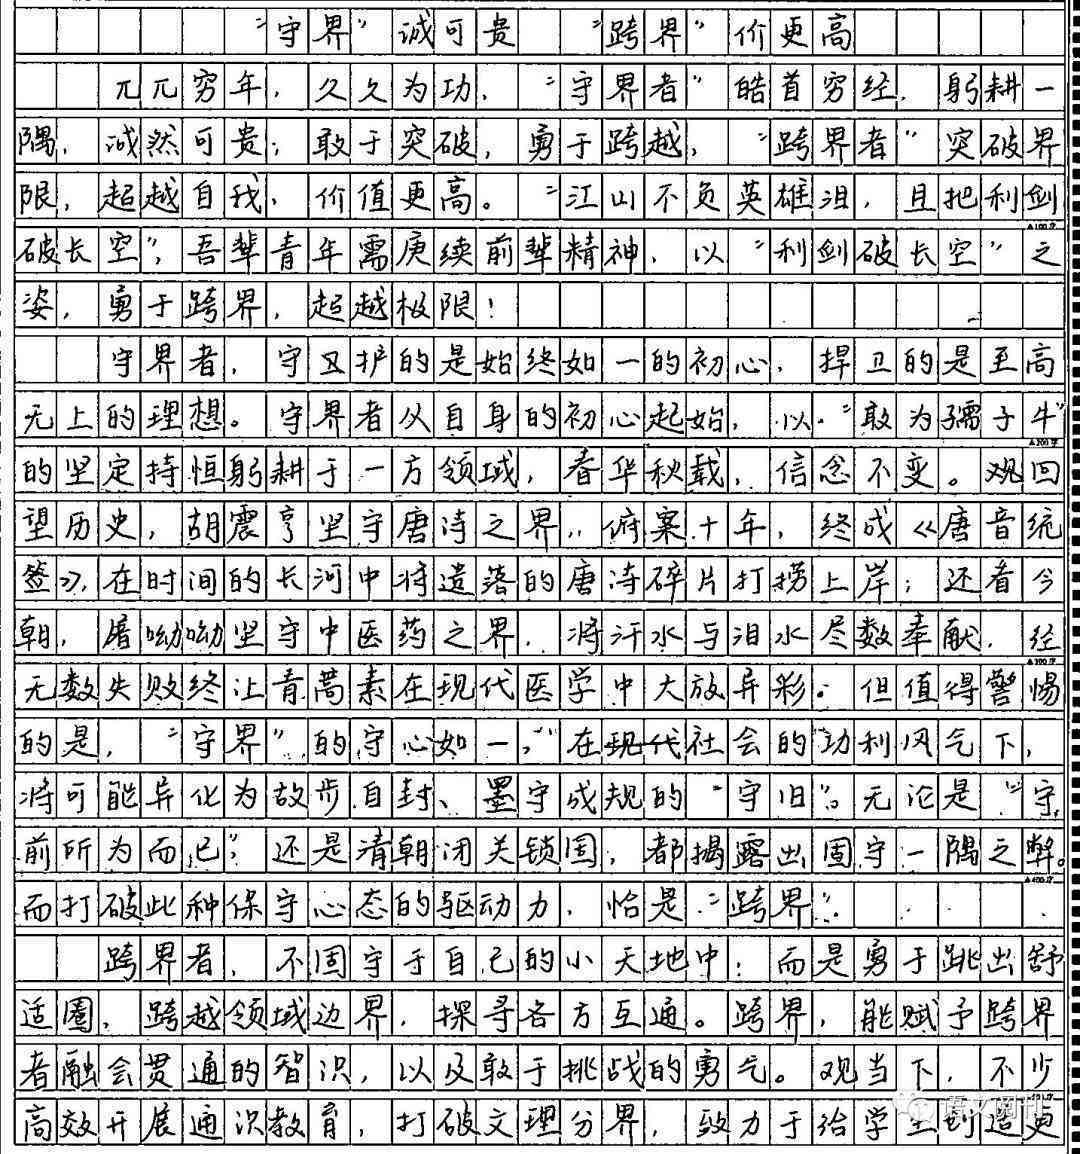 “守界”诚可贵 “跨界”价更高
兀兀穷年，久久为功，“守界者”皓首穷经，躬耕一
隅，诚然可贵；敢于突破，勇于跨越，“跨界者”突破界
限，超越自我，价值更高。“江山不负英雄泪，且把利剑
破长空”，吾辈青年需赓续前辈精神，以“利剑破长空”之
▲100字
姿，勇于跨界，超越极限！
守界者，守护的是始终如一的初心，捍卫的是至高
无上的理想。守界者从自身的初心起始，以“敢为孺子牛”
▲200字
的坚定持恒躬耕于一方领域，春华秋载，信念不变。观回
望历史，胡震亨坚守唐诗之界，俯案十年，终成《唐音统
签》，在时间的长河中将遗落的唐诗碎片打捞上岸；还看今
朝，屠呦呦坚守中医药之界，将汗水与泪水尽数奉献，经
▲300字
无数失败终让青蒿素在现代医学中大放异彩。但值得警惕
的是，“守界”的守心如一，在现代社会的功利风气下，
将可能异化为故步自封、墨守成规的“守旧”。无论是“守
前所为而已”，还是清朝闭关锁国，都揭露出固守一隅之弊。
▲400字
而打破此种保守心态的驱动力，恰是“跨界”。
跨界者，不固守于自己的小天地中；而是勇于跳出舒
适圈，跨越领域边界，探寻各方互通。跨界，能赋予跨界
者融会贯通的智识，以及敢于挑战的勇气。观当下，不少
高效开展通识教育，打破文理分界，致力于给学生创造更
语文周刊